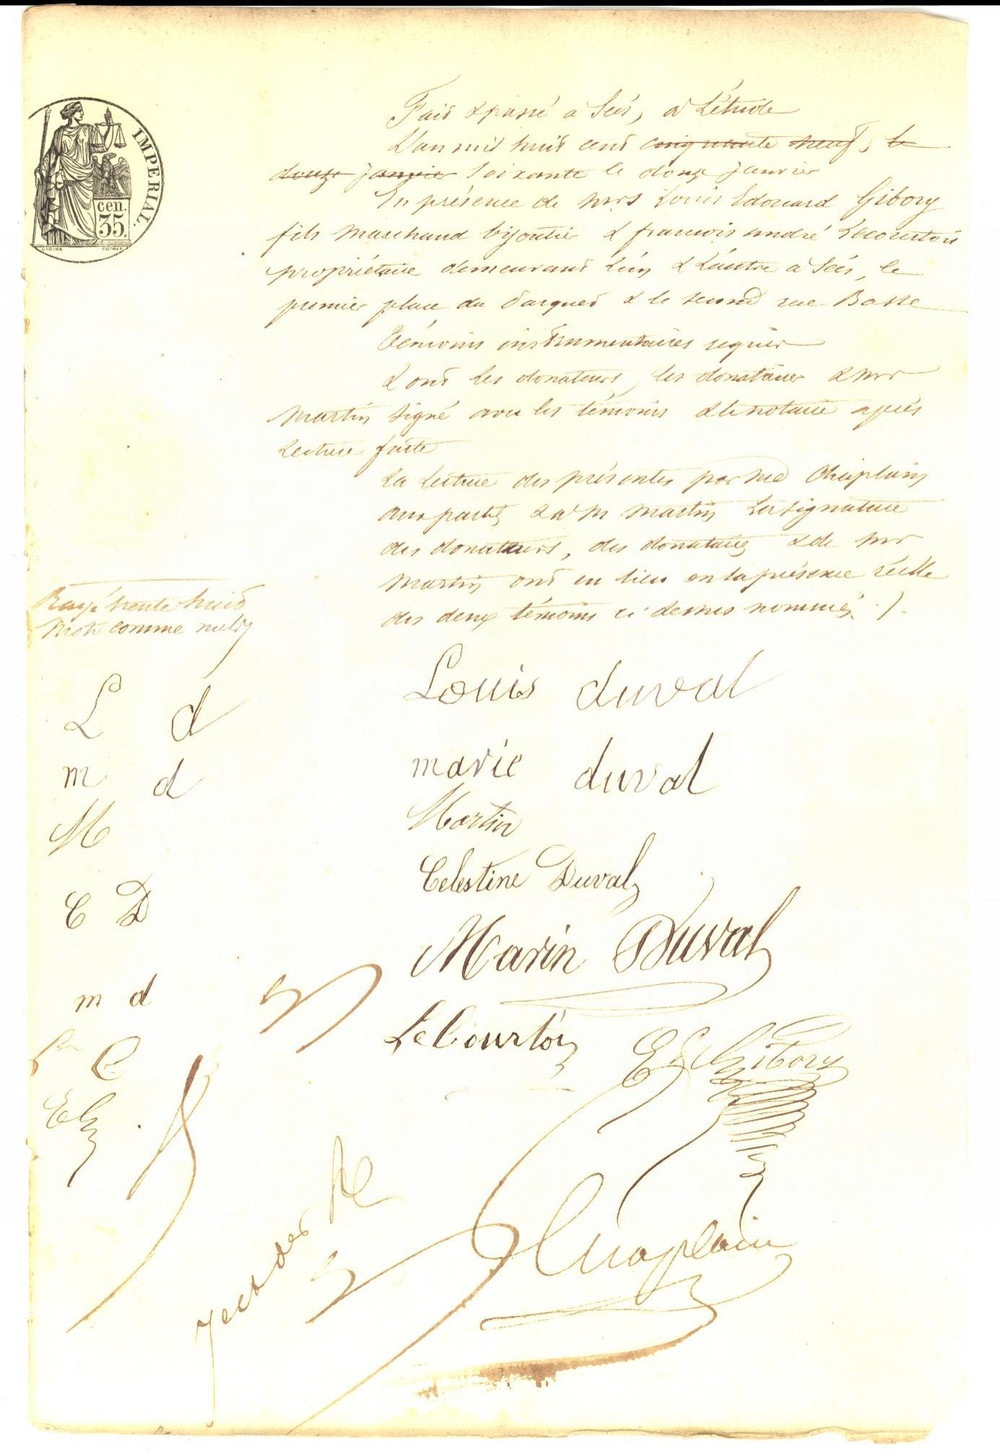 IMPERIAL.
cen.
35.
Fait & passé a Séés, a L'étude
L'an mil huit cent cinquante neuf, le
douze janvier soixante le douze janvier
En présence de mrs Louis Edouard Gibory
fils marchand bijoutier & françois andré Lecourtois
propriétaire demeurant L'un & L'autre a Séés, le
premier place du Parquet & le second rue Basse
témoins instrumentaires requis
& ont les donateurs, les donataires & mr
Martin signé avec les témoins & le notaire après
Lecture faite
La Lecture des présentes par Me Chaplain
aux parties & a Mr Martin La signature
des donateurs, des donataires & de Mr
Martin ont eu lieu en la présence réelle
des deux témoins ci dessus nommés ./.
Rayé trente huit
mots comme nuls
L d
Louis duval
m d
marie duval
M
Martin
C D
Celestine Duval
Marin Duval
m d
LeCourtois
E L Gibory
C
E G
Chaplain